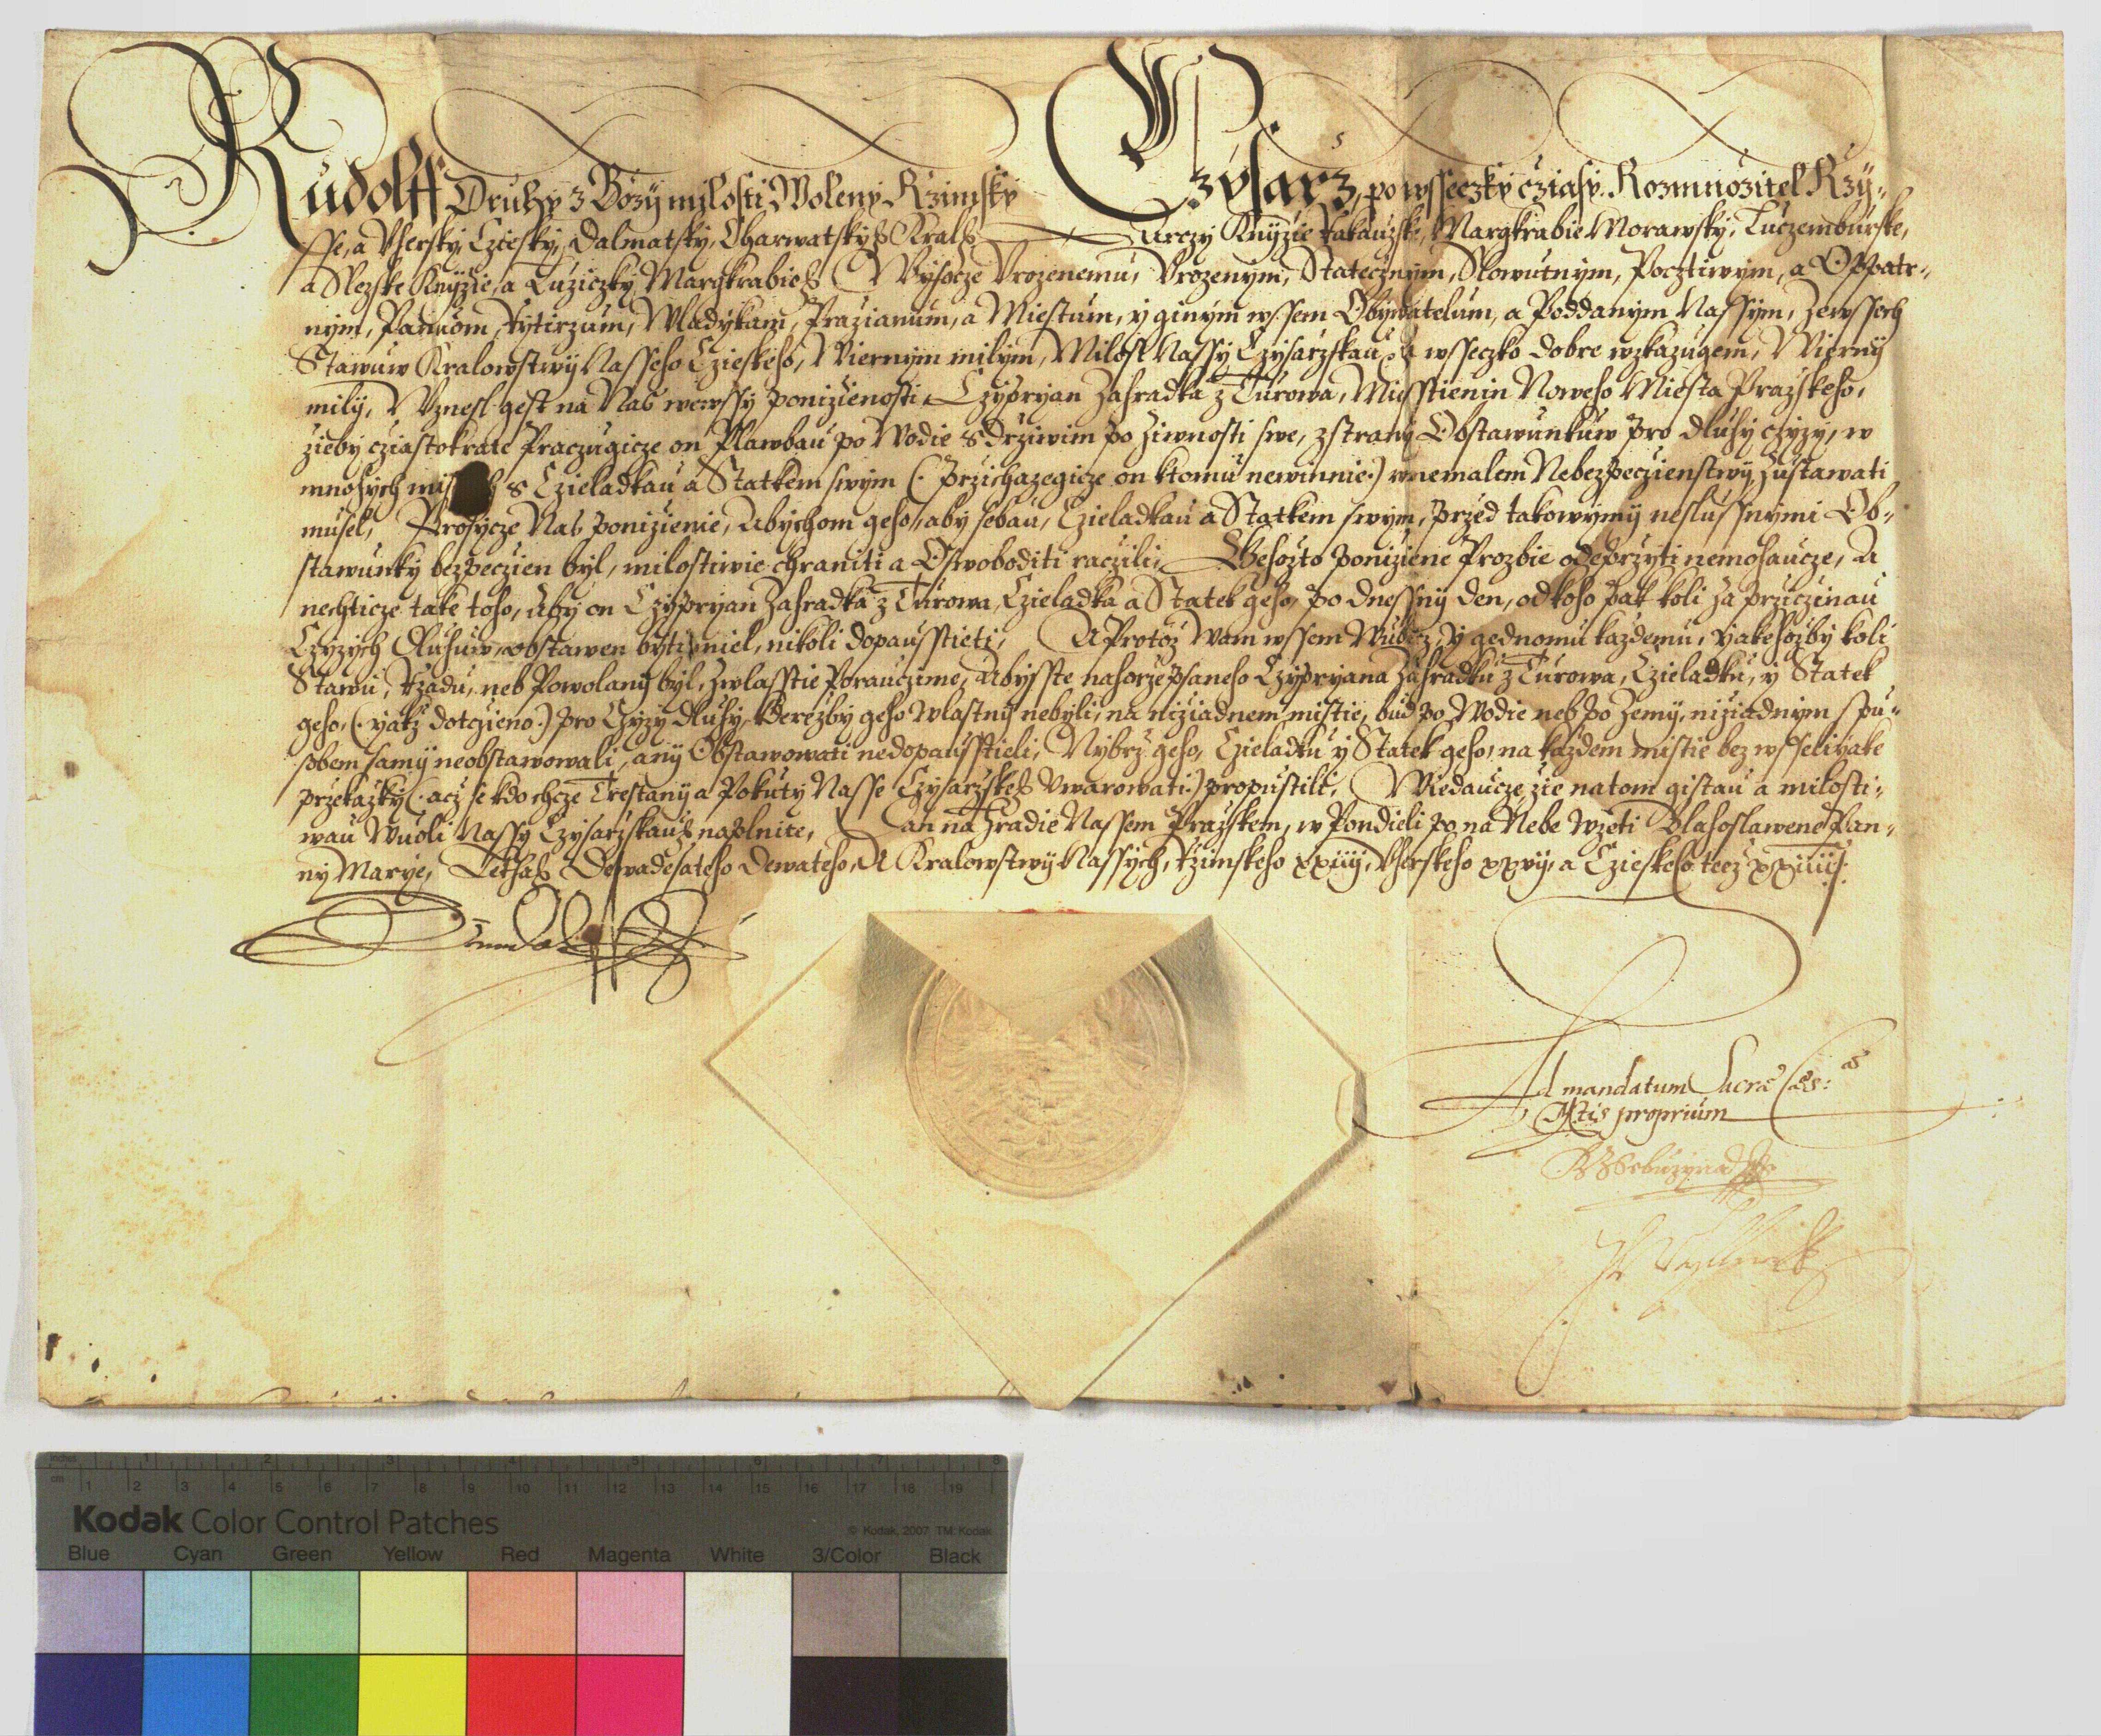 Rudolff Druhy z Bozy milosti Woleny Rzimsky Czysarz, po wsseczky cziasy Rozmnozitel Rzy-
sse, a Vhersky, Cziesky, Dalmatsky, Charwatsky &c Kral &c Arczy Knyzie Rakauzske, Margkrabie Morawsky, Luczemburske,
a Slezske Knyzie, a Luziczky Margkrabie &c Wysocze Vrozenemu, Vrozenym, Statecznym, Slowutnym, Pocztiwym, a Oppatr-
nym, Panuom, Rytirzum, Wladykam, Prazianum, a Miestum, y ginym wssem Obywatelum, a Poddanym Nassym, zewssech
Stawuw Kralowstwy Nasseho Czieskeho, Wiernym milym, Milost Nassy Czysarzskau, a wsseczko dobre wzkazugem, Wierny
mily, Vznesl gest na Nas wewssy ponizienosti Czypryan Zahradka z Turowa, Miesstienin Noweho Miesta Prazskeho,
zieby cziastokrate Praczugicze on Plawbau po Wodie s Drziwim po ziwnosti swe, z strany Obstawunkuw pro dluhy czyzy, w
mnohych s Czieladkau a Statkem swym (: przichazegicze on ktomu newinnie :) wnemalem Nebezpeczienstwy zustawati
musel, Prosycze Nas ponizienie, Abychom geho, aby sebau, Czieladkau a Statkem swym, przed takowymy neslussnymi Ob-
stawunky bezpeczien byl, milostiwie chraniti a Oswoboditi raczili, Gehozto poniziene Prozbie odeprzyti nemohaucze, A
nechticze take toho, aby on Czypryan Zahradka z Turowa, Czieladka a Statek geho, po dnessny den, od koho pak koli za prziczinau
Czyzych Dluhuw, obstawen byti miel, nikoli dopausstieti, A Protoz Wam wssem Wubecz, y gednomu kazdemu, yakehozby koli
Stawu, Rzadu, neb Powolany byl, zwlasstie Porauczime, Abysste nahorzepsaneho Czypryana Zahradku z Turowa, Czieladku, y Statek
geho, (: yakz dotczieno :) pro Czyzy dluhy, kterezby geho wlastny nebyli, na niziadnem mistie, bud po Wodie neb po Zemy, niziadnym spu-
sobem samy neobstawowali, any Obstawowati nedopausstieli, Nybrz geho, Czieladku y Statek geho, na kazdem mistie bez wsseliyake
przekazky (: acz se kdo chcze Trestany a Pokuty Nasse Czysarzske &c Vwarowati :) propustili, Wiedaucze zie natom gistau a milosti-
wau Wuoli Nassy Czysarzskau &c naplnite, Dan na Hradie Nassem Prazskem, w Pondieli po na Nebe Wzeti Blahoslawene Pan-
ny Marye, Letha &c Dewadesateho Dewateho, A Kralowstwy Nassych, Rzimskeho xxiiij, Vherskeho xxvij, a Czieskeho teez xxiiij:
Rudolff
Ad mandatum Sacrae Caes: ae
Mtis proprium